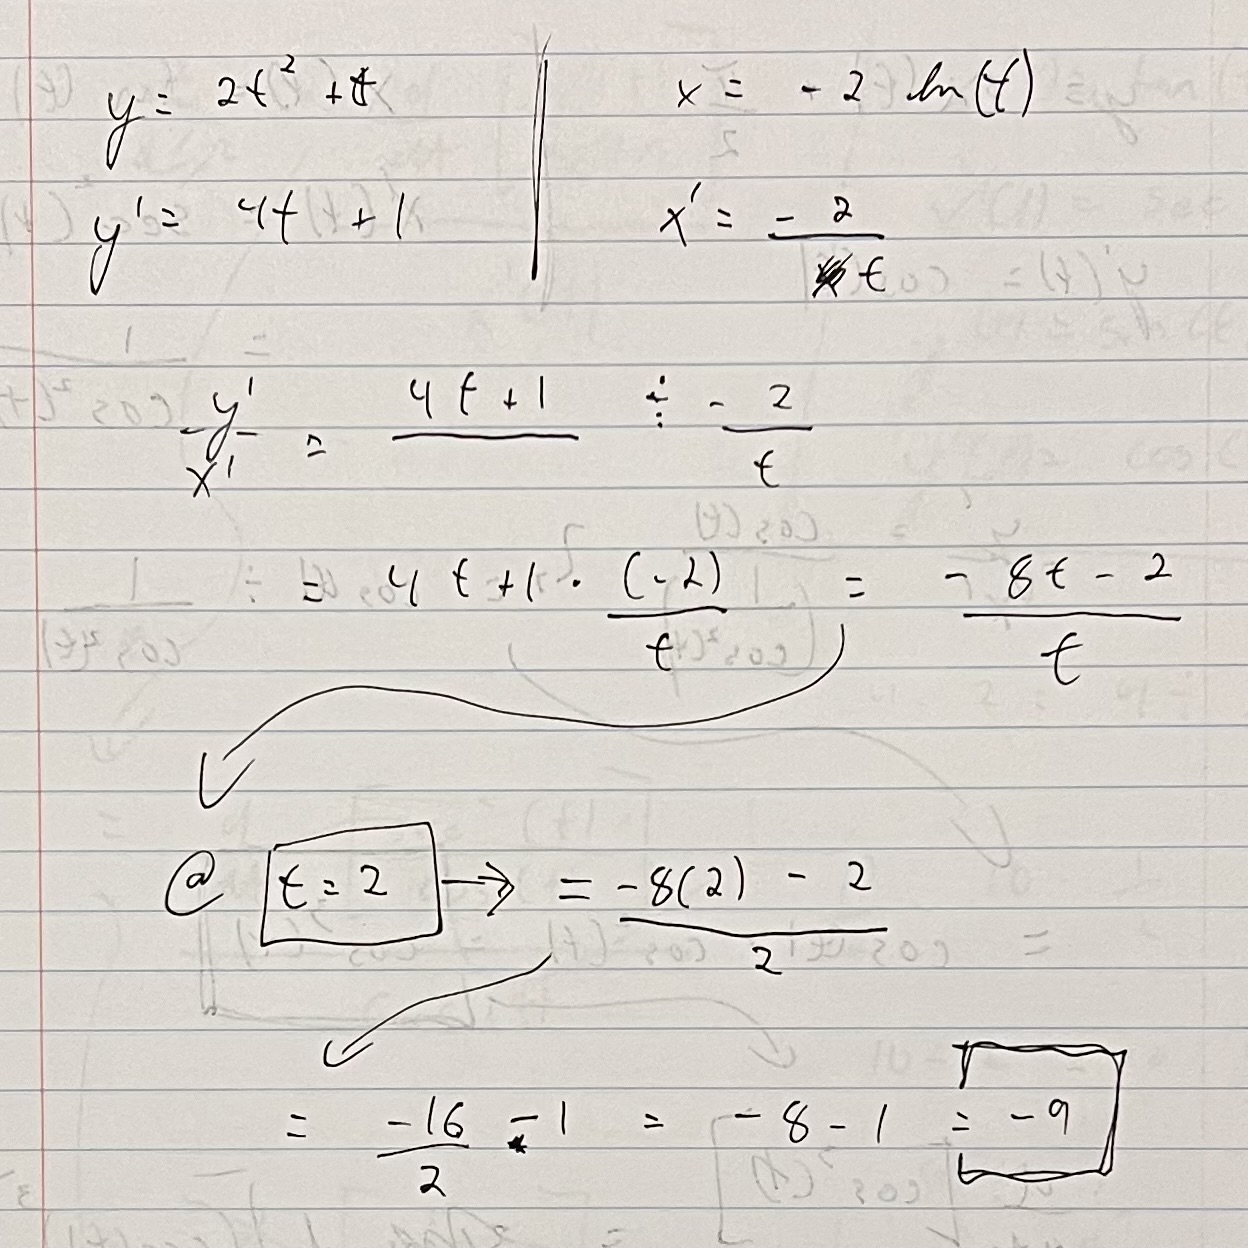 y = 2t² + t
x = - 2 ln(t)
y' = 4t + 1
x' = - 2/t
y'/x' = 4t+1 ÷ - 2/t
= 4t+1 · (-2)/t = - 8t - 2/t
@ t = 2 → = -8(2) - 2/2
= -16/2 - 1 = - 8 - 1 = - 9